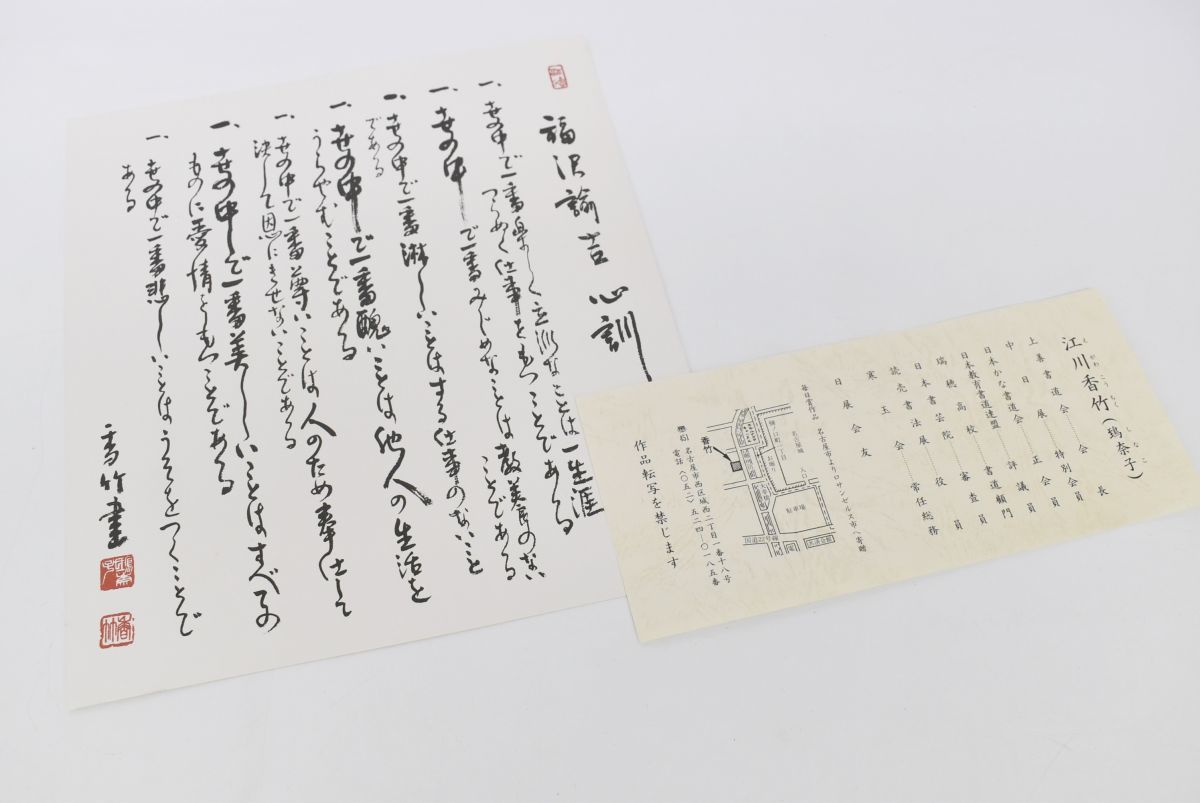 福沢諭吉心訓
一、世の中で一番楽しく立派なことは一生涯
つらぬく仕事をもつことである
一、世の中で一番みじめなことは教養のない
ことである
一、世の中で一番淋しいことはする仕事のないこと
である
一、世の中で一番醜いことは他人の生活を
うらやむことである
一、世の中で一番尊いことは人のため奉仕して
決して恩にきせないことである
一、世の中で一番美しいことはすべての
ものに愛情をもつことである
一、世の中で一番悲しいことはうそをつくことで
ある
香竹書
江川香竹(瑦奈子)
上善書道会………会長
中日展………特別会員
日本かな書道会………正会員
日本教育書道連盟………評議員
瑞穂高校………書道顧問
日本書芸院………審査員
読売書法展………役員
寒玉会………常任総務
日展会友
毎日賞作品 名古屋市よりロサンゼルス市へ寄贈
名古屋城
入口
お堀り
樋ノ口町
駐車場
国道22号線
香竹
名古屋市西区城西二丁目一番十八号
電話(〇五二)五二四-〇一八五番
作品転写を禁じます